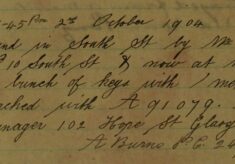 -45 Pm 2nd October 1904
nd in South St by
10 South St & now at
bunch of keys with 1
ched with A 91079.
nager 102 Hope St Glasg
A Burns P.C. 24